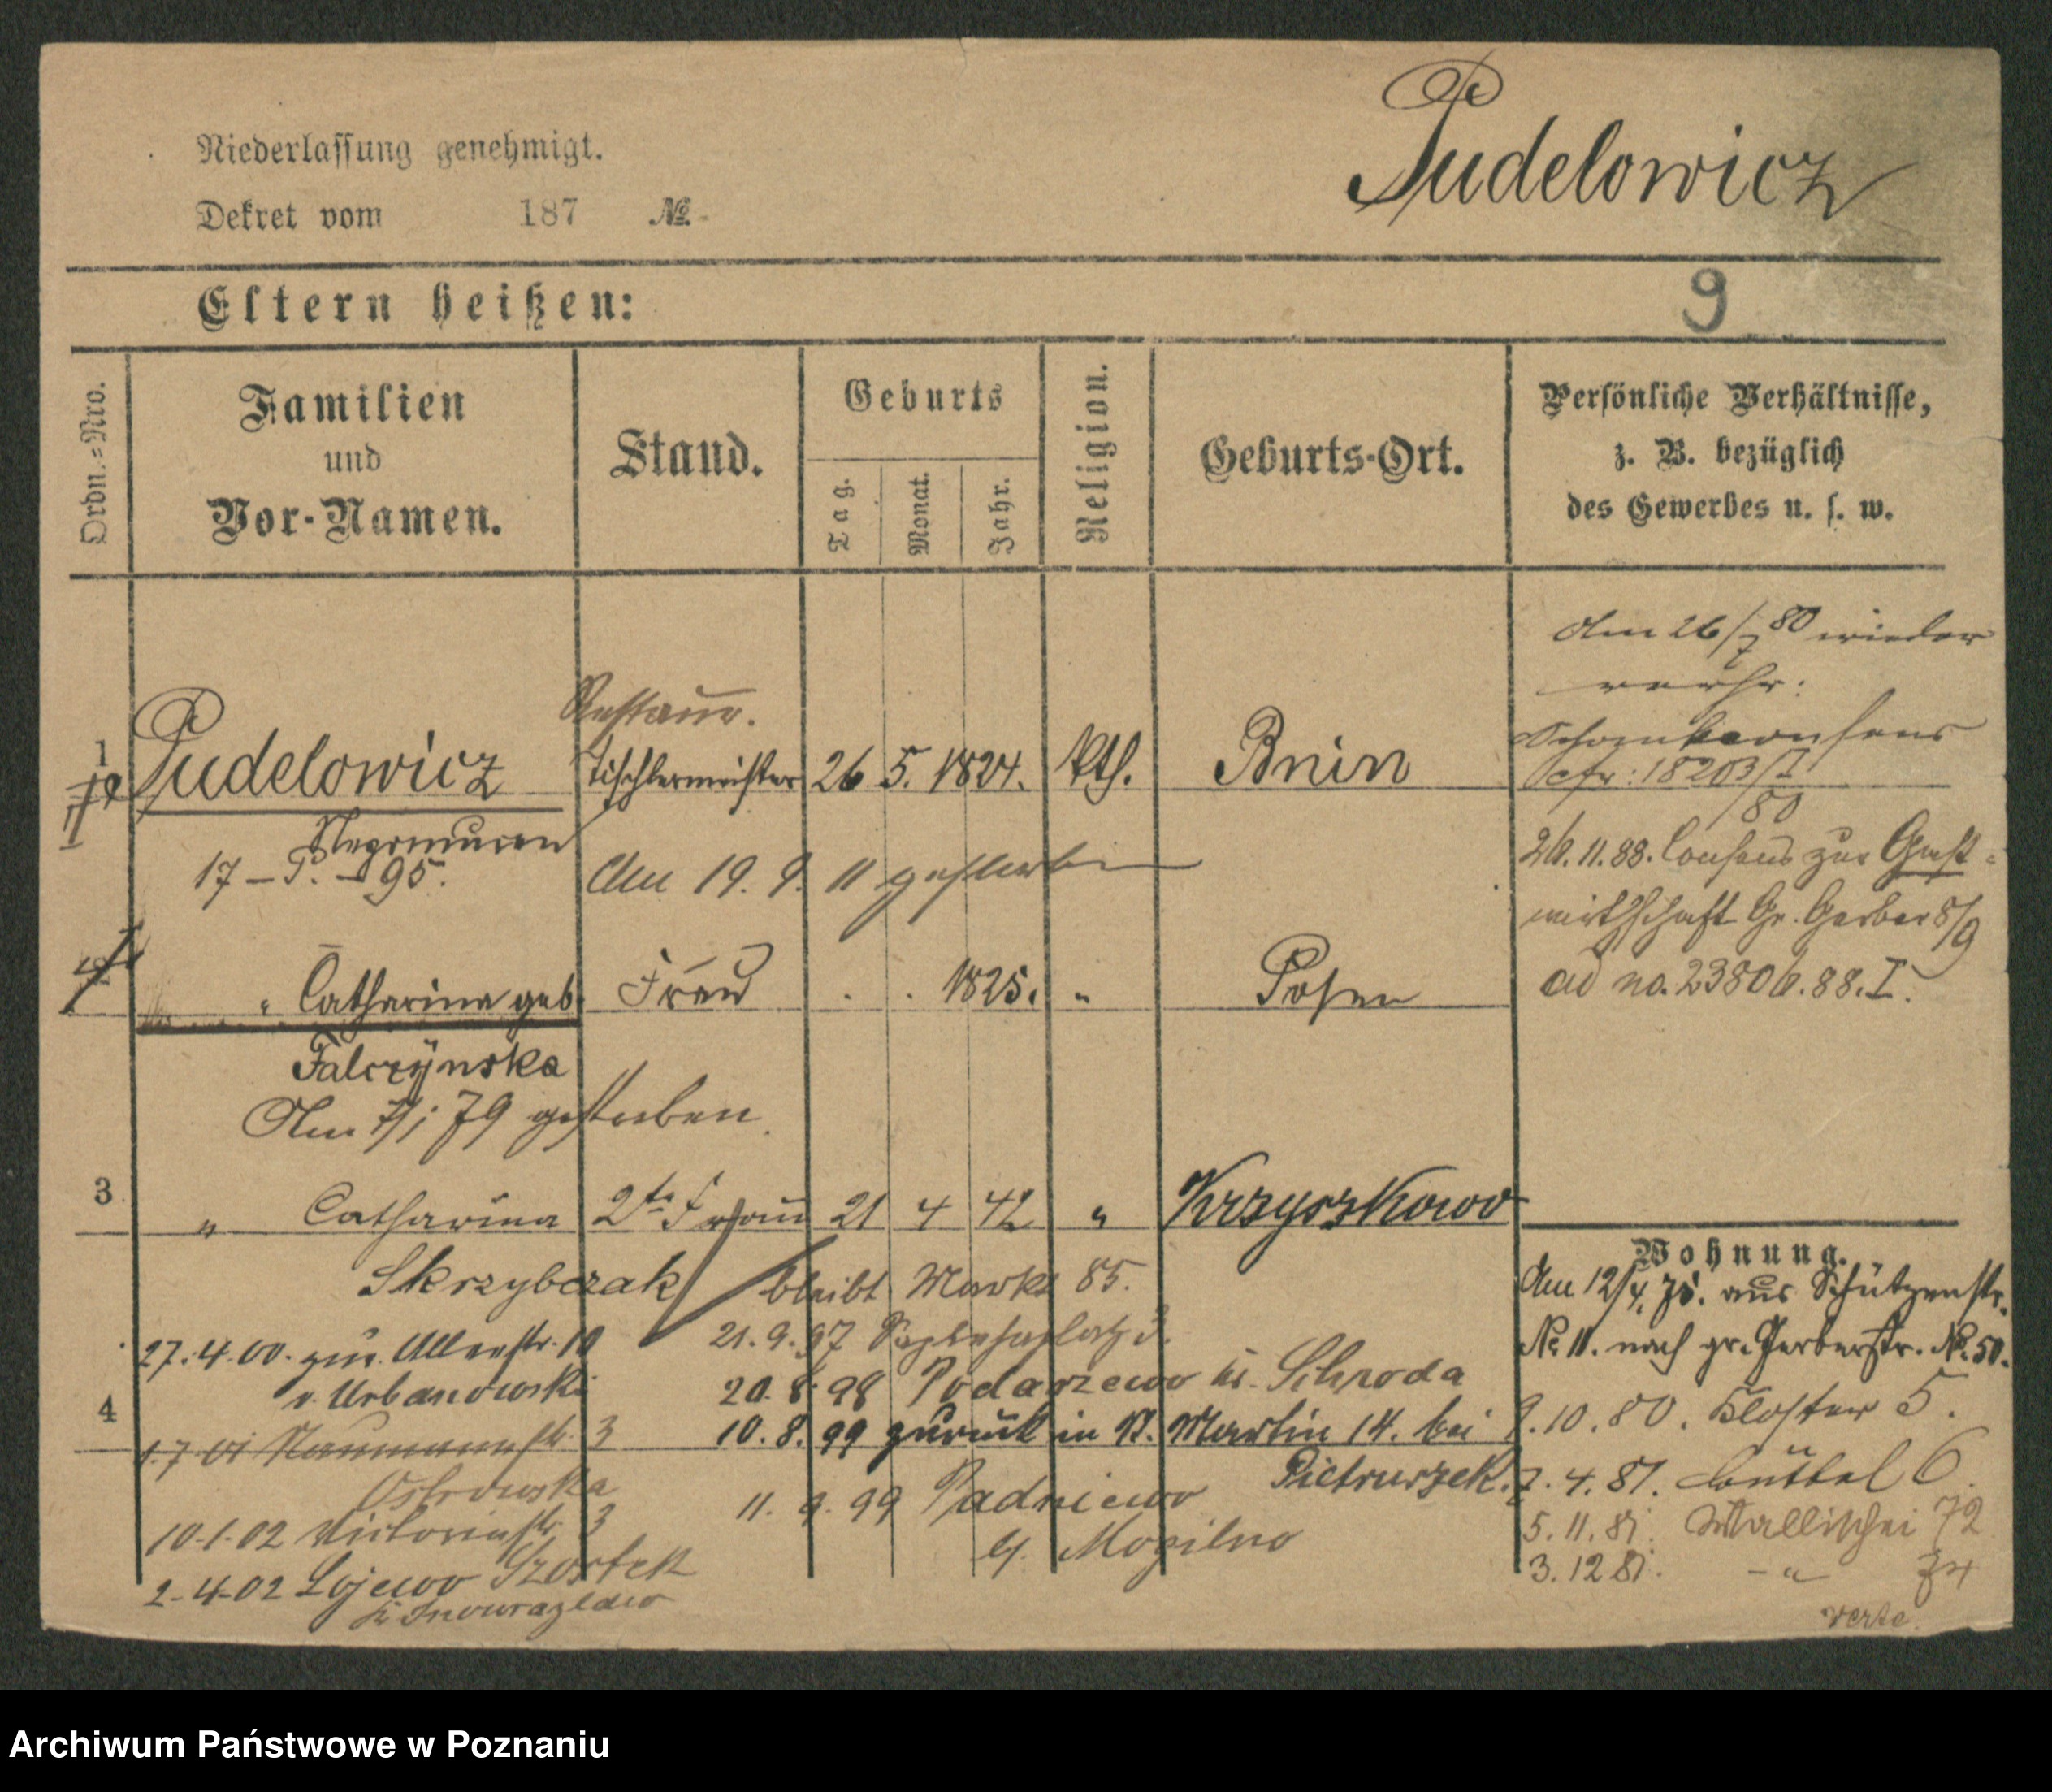 Niederlassung genehmigt.
Pudelowicz
Dekret vom 187 №.
Eltern heißen:
9
Ordn.=Nro.
Familien
und
Vor-Namen.
Stand.
Geburts
Tag.
Monat.
Jahr.
Religion.
Geburts-Ort.
Persönliche Verhältnisse,
z. B. bezüglich
des Gewerbes u. s. w.
Am 26/7 80 wieder
verhr:
Restaur.
Schankconsens
1 Pudelowicz Tischlermeister 26 5. 1824. kth. Bnin
cfr: 18203/I
80
17 - 5. - 95.
Am 19. 9. 11 gestorben
26.11.88. Consens zur Gast-
wirthschaft Gr. Gerber 8/9
" Catharina geb. Frau . . 1825. " Posen
ad no. 23806.88.I.
Falczynska
Am 7/1 79 gestorben.
3 " Catharina 2te Frau 21 4 42 " Krzyszkowo
Skrzybczak
bleibt Markt 85.
Wohnung.
Am 12/4. 75. aus Schützenstr.
№ 11. nach gr. Gerberstr. №. 50.
21.9.97 Sapiehaplatz 3.
27.4.00. zur. Allerstr. 10
v. Urbanowski
20. 8. 98 Podarzewo kr. Schroda
4
10. 8. 99 zurück in St. Martin 14. bei
Pietruszek.
9.10.80. Kloster 5.
1.7 01 Naumannstr. 3
Ostrowska
11. 9. 99 Padniewo
Kr. Mogilno
7.4.81. Büttel 6.
10-1-02 Victoriastr. 3
Szostek
5.11.81. Wallischei 72
2-4-02 Lojewo
Kr. Inowrazlaw
3.12 81. - " 74
verte.